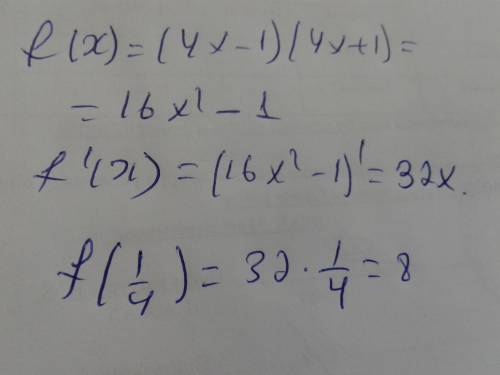 f(x) = (4x-1)(4x+1) =
= 16x² - 1
f'(x) = (16x² - 1)' = 32x.
f(1/4) = 32 · 1/4 = 8